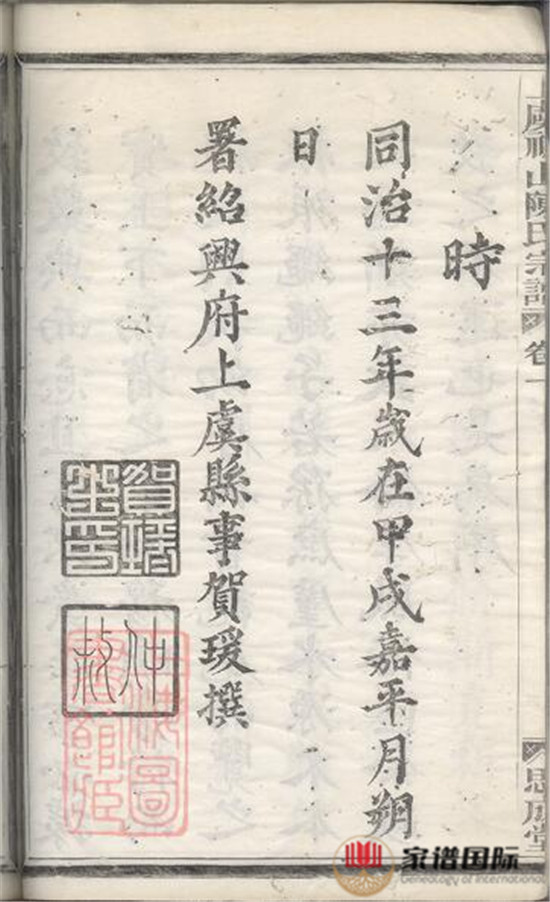 時
同治十三年歲在甲戌嘉平月朔
日
署紹興府上虞縣事賀瑗撰
氏宗譜
卷一
思成堂
家谱国际
Genealogy of International